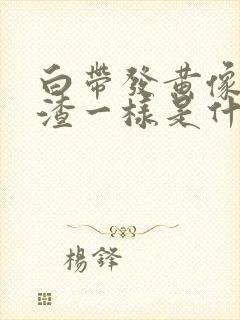 白帶發黃像
渣一樣是什
楊鋒